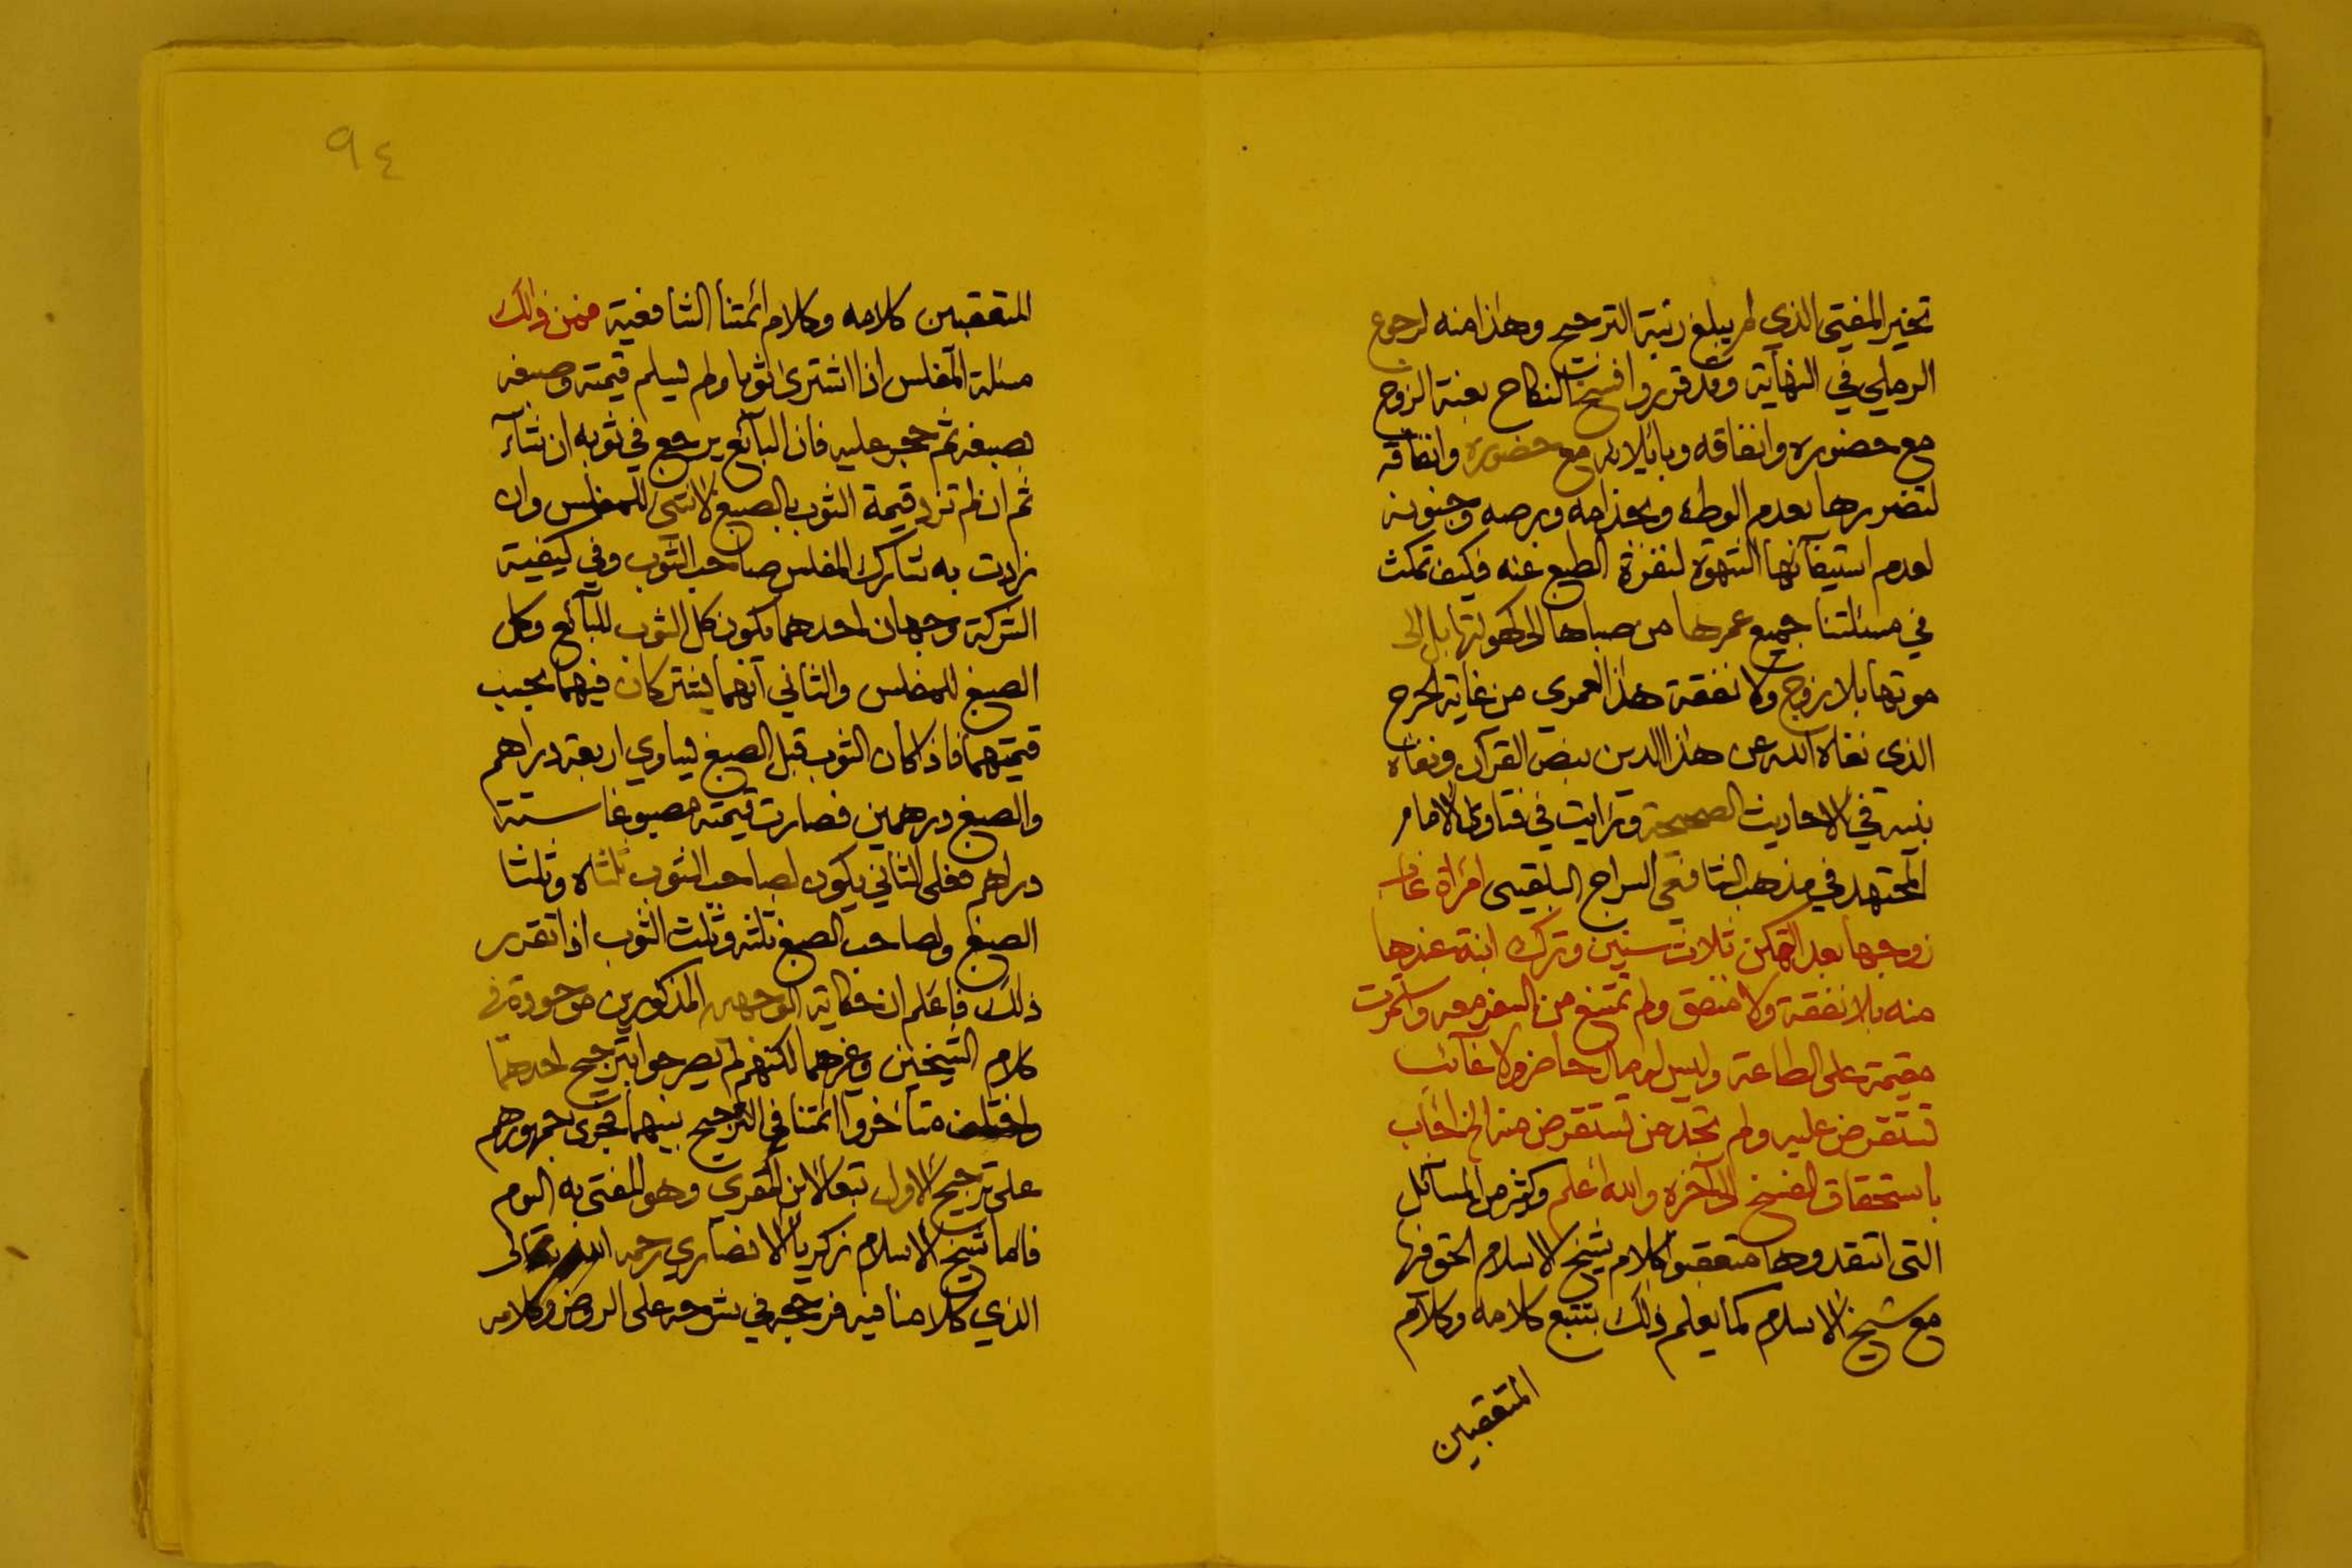 تخير المفتي الذي لم يبلغ رتبة الترجيح وهذا منه لرجوع
الرملي في النهاية وقد قرروا فسخت النكاح بعنة الزوج
مع حضوره وانفاقه وبايلائه مع حضوره وانفاقه
لتضررها بعدم الوطء وبجذامه وبرصه وجنونه
لعدم استيفآئها الشهوة لنفرة الطبع عنه فكيف تمكث
في مسئلتنا جميع عمرها من صباها الى كهولتها بل الى
موتها بلا زوج ولا نفقة هذا لعمري من غاية الحرج
الذي نفاه الله عن هذا الدين بنص القرآن ونفاه
نبيه في الاحاديث الصحيحة ورايت في فتاوى الامام
المجتهد في مذهب الشافعي السراج البلقيني امراة غاب
زوجها بعد التمكن ثلاث سنين وترك ابنة عندها
منه بلا نفقة ولا منفق ولم تمتنع من السفر معه واستمرت
مقيمة على الطاعة وليس له مال حاضر ولا غآئب
تستقرض عليه ولم تجد من تستقرض منه الخ افاب
باستحقاق الفسخ الى آخره والله اعلم وكثير من المسآئل
التي انتقدوها متعقبوا كلام شيخ الاسلام الحق فيها
مع شيخ الاسلام كما يعلم ذلك بتتبع كلامه وكلام
المتعقبين
٩٤
المتعقبين كلامه وكلام ائمتنا الشافعية فمن ذالك
مسئلة المفلس اذا اشترى ثوبا ولم يسلم قيمته وصبغه
بصبغه ثم حجر عليه فان البآئع يرجع في ثوبه ان شآء
ثم ان لم تزد قيمة الثوب بالصبغ لا شي للمفلس وان
زادت به شارك المفلس صاحب الثوب وفي كيفية
الشركة وجهان احدهما يكون كل الثوب للبآئع وكل
الصبغ للمفلس والثاني انهما يشتركان فيهما بحسب
قيمتهما فاذا كان الثوب قبل الصبغ يساوي اربعة دراهم
والصبغ درهمين فصارت قيمته مصبوغا ستة
دراهم فعلى الثاني يكون لصاحب الثوب ثلثاه وثلثا
الصبغ ولصاحب الصبغ ثلثه وثلث الثوب اذا تقرر
ذلك فاعلم ان حكاية الوجهين المذكورين موجودة في
كلام الشيخين وغيرهما لكنهم لم يصرحوا بترجيح احدهما
واختلف متأخروا ائمتنا في الترجيح بينهما فجرى جمهورهم
على ترجيح الاول تبعا لابن المقري وهو المفتى به اليوم
فاما شيخ الاسلام زكريا الانصاري رحمه الله تعالى
الذي كلامنا فيه فرجحه في شرحه على الروض وكلامه